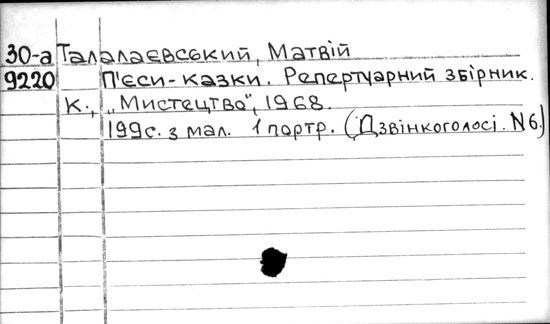 30-а Талалаєвський, Матвій
9220 П'єси-казки. Репертуарний збірник.
К., „Мистецтво", 1968.
199с. з мал. 1 портр. (Дзвінкоголосі. N6.)